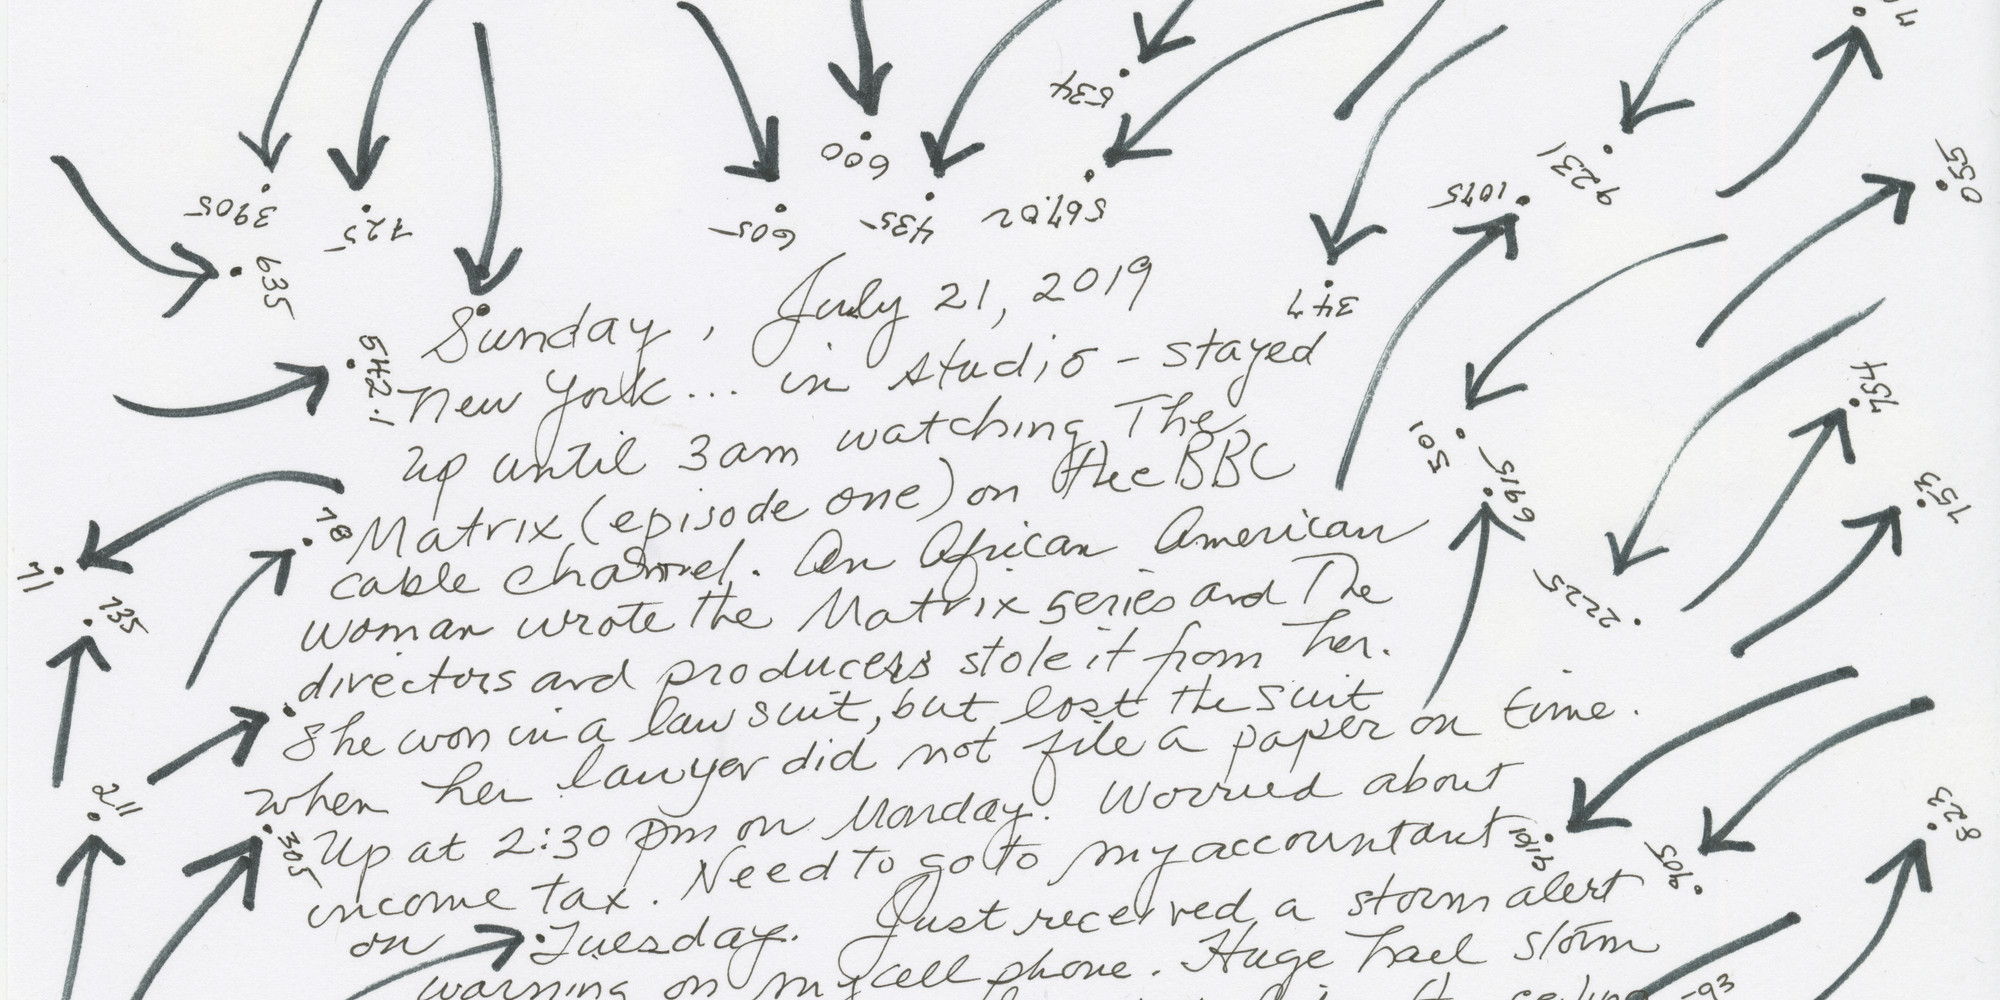 534
600
3905
725
605
435
5671.02
1075
9231
055
635
Sunday, July 21, 2019
347
542.1
New York... in studio - stayed
up until 3am watching The
Matrix (episode one) on the BBC
cable channel. An African American
woman wrote the Matrix series and The
directors and producers stole it from her.
She won in a lawsuit, but lost the suit
when her lawyer did not file a paper on time.
Up at 2:30 pm on Monday. Worried about
income tax. Need to go to my accountant
on Tuesday. Just received a storm alert
warning on my cell phone. Huge hail storm
754
501
6915
753
78
71
735
2225
211
305
905
823
-93